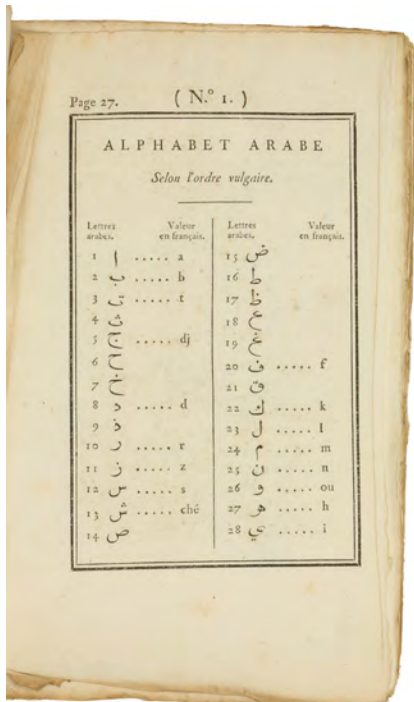 Page 27.
( N.º 1. )
ALPHABET ARABE
Selon l'ordre vulgaire.
Lettres arabes. Valeur en français.
1 ا ..... a
2 ب ..... b
3 ت ..... t
4 ث
5 ج ..... dj
6 ح
7 خ
8 د ..... d
9 ذ
10 ر ..... r
11 ز ..... z
12 س ..... s
13 ش ..... ché
14 ص
Lettres arabes. Valeur en français.
15 ض
16 ط
17 ظ
18 ع
19 غ
20 ف ..... f
21 ق
22 ك ..... k
23 ل ..... l
24 م ..... m
25 ن ..... n
26 و ..... ou
27 ه ..... h
28 ي ..... i